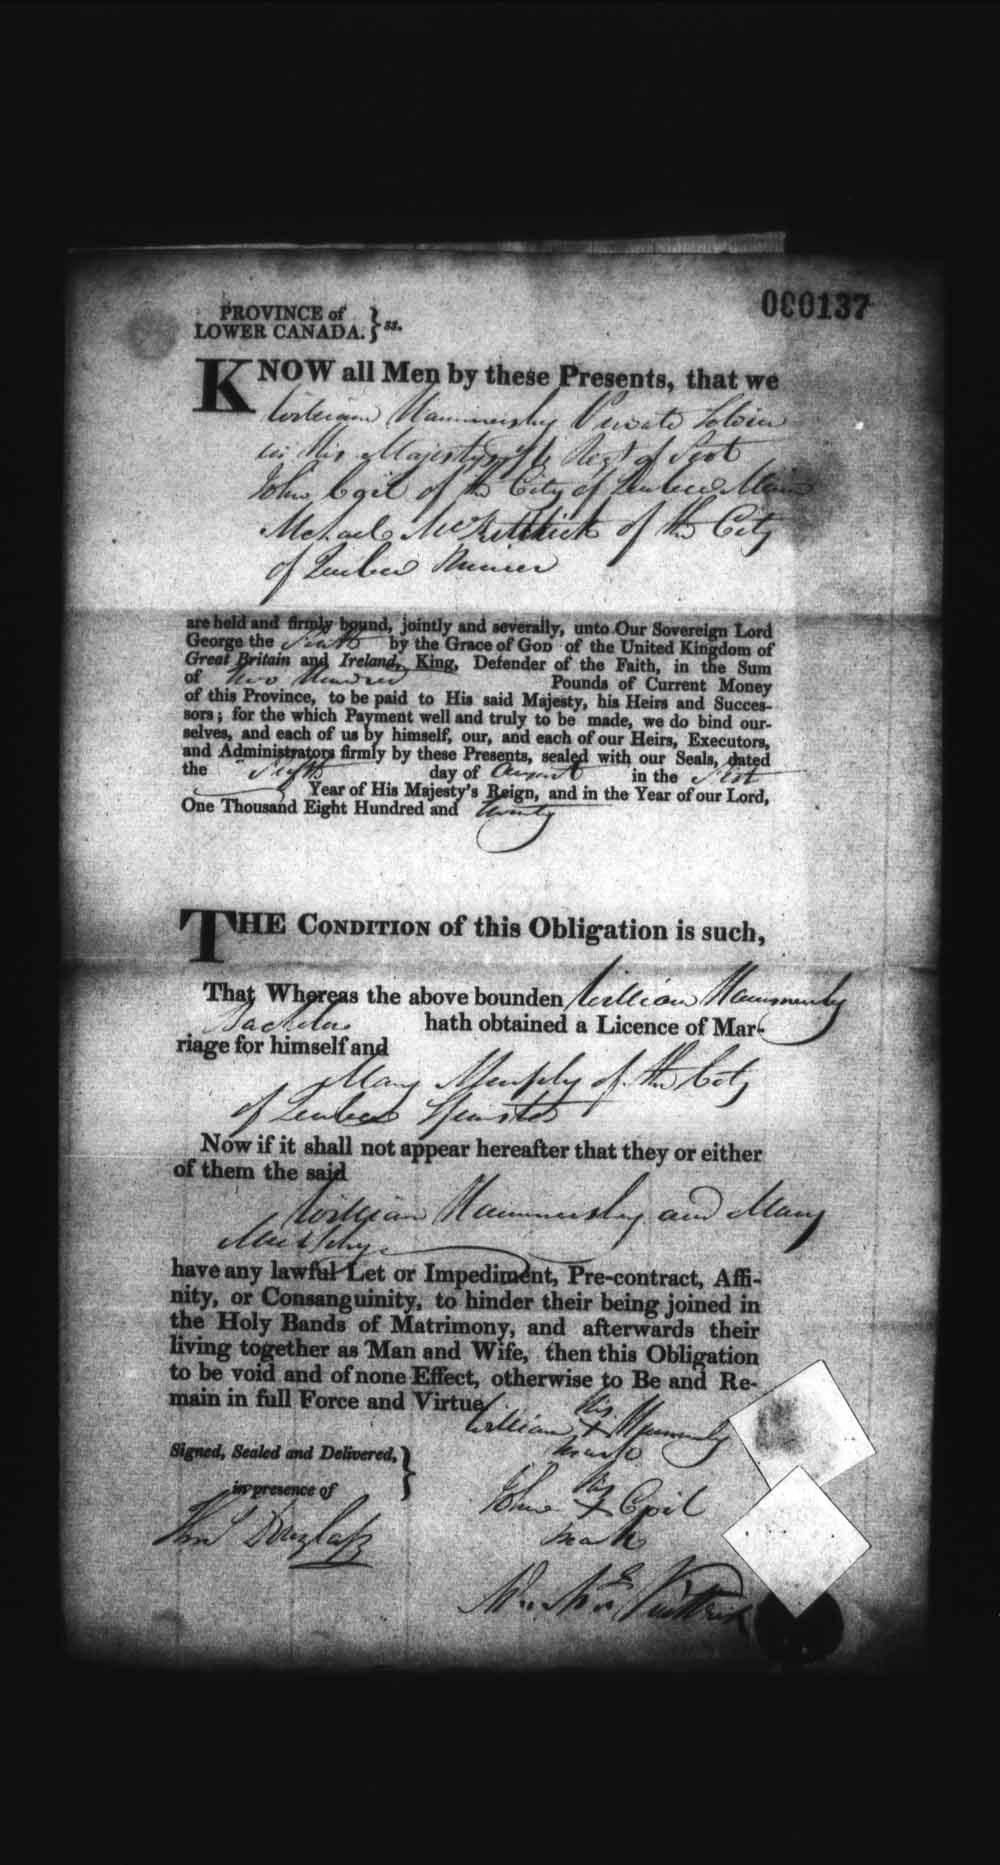 000137
PROVINCE of
LOWER CANADA. } ss.
KNOW all Men by these Presents, that we
William Hammersly Private Soldier
in His Majestys Regt of Foot
John Coil of the City of Quebec
Michael McKittrick of the City
of Quebec
are held and firmly bound, jointly and severally, unto Our Sovereign Lord
George the by the Grace of GOD of the United Kingdom of
Great Britain and Ireland, King, Defender of the Faith, in the Sum
of Two Hundred Pounds of Current Money
of this Province, to be paid to His said Majesty, his Heirs and Succes-
sors; for the which Payment well and truly to be made, we do bind our-
selves, and each of us by himself, our, and each of our Heirs, Executors,
and Administrators firmly by these Presents, sealed with our Seals, dated
the day of August in the First
Year of His Majesty's Reign, and in the Year of our Lord,
One Thousand Eight Hundred and twenty
THE CONDITION of this Obligation is such,
That Whereas the above bounden William Hammersly
Bachelor hath obtained a Licence of Mar-
riage for himself and
Mary Murphy of the City
of Quebec Spinster
Now if it shall not appear hereafter that they or either
of them the said
William Hammersly and Mary
Murphy
have any lawful Let or Impediment, Pre-contract, Affi-
nity, or Consanguinity, to hinder their being joined in
the Holy Bands of Matrimony, and afterwards their
living together as Man and Wife, then this Obligation
to be void and of none Effect, otherwise to Be and Re-
main in full Force and Virtue
his
William + Hammersly
mark
Signed, Sealed and Delivered, }
in presence of
his
John + Coil
mark
Thos Douglass
McKittrick